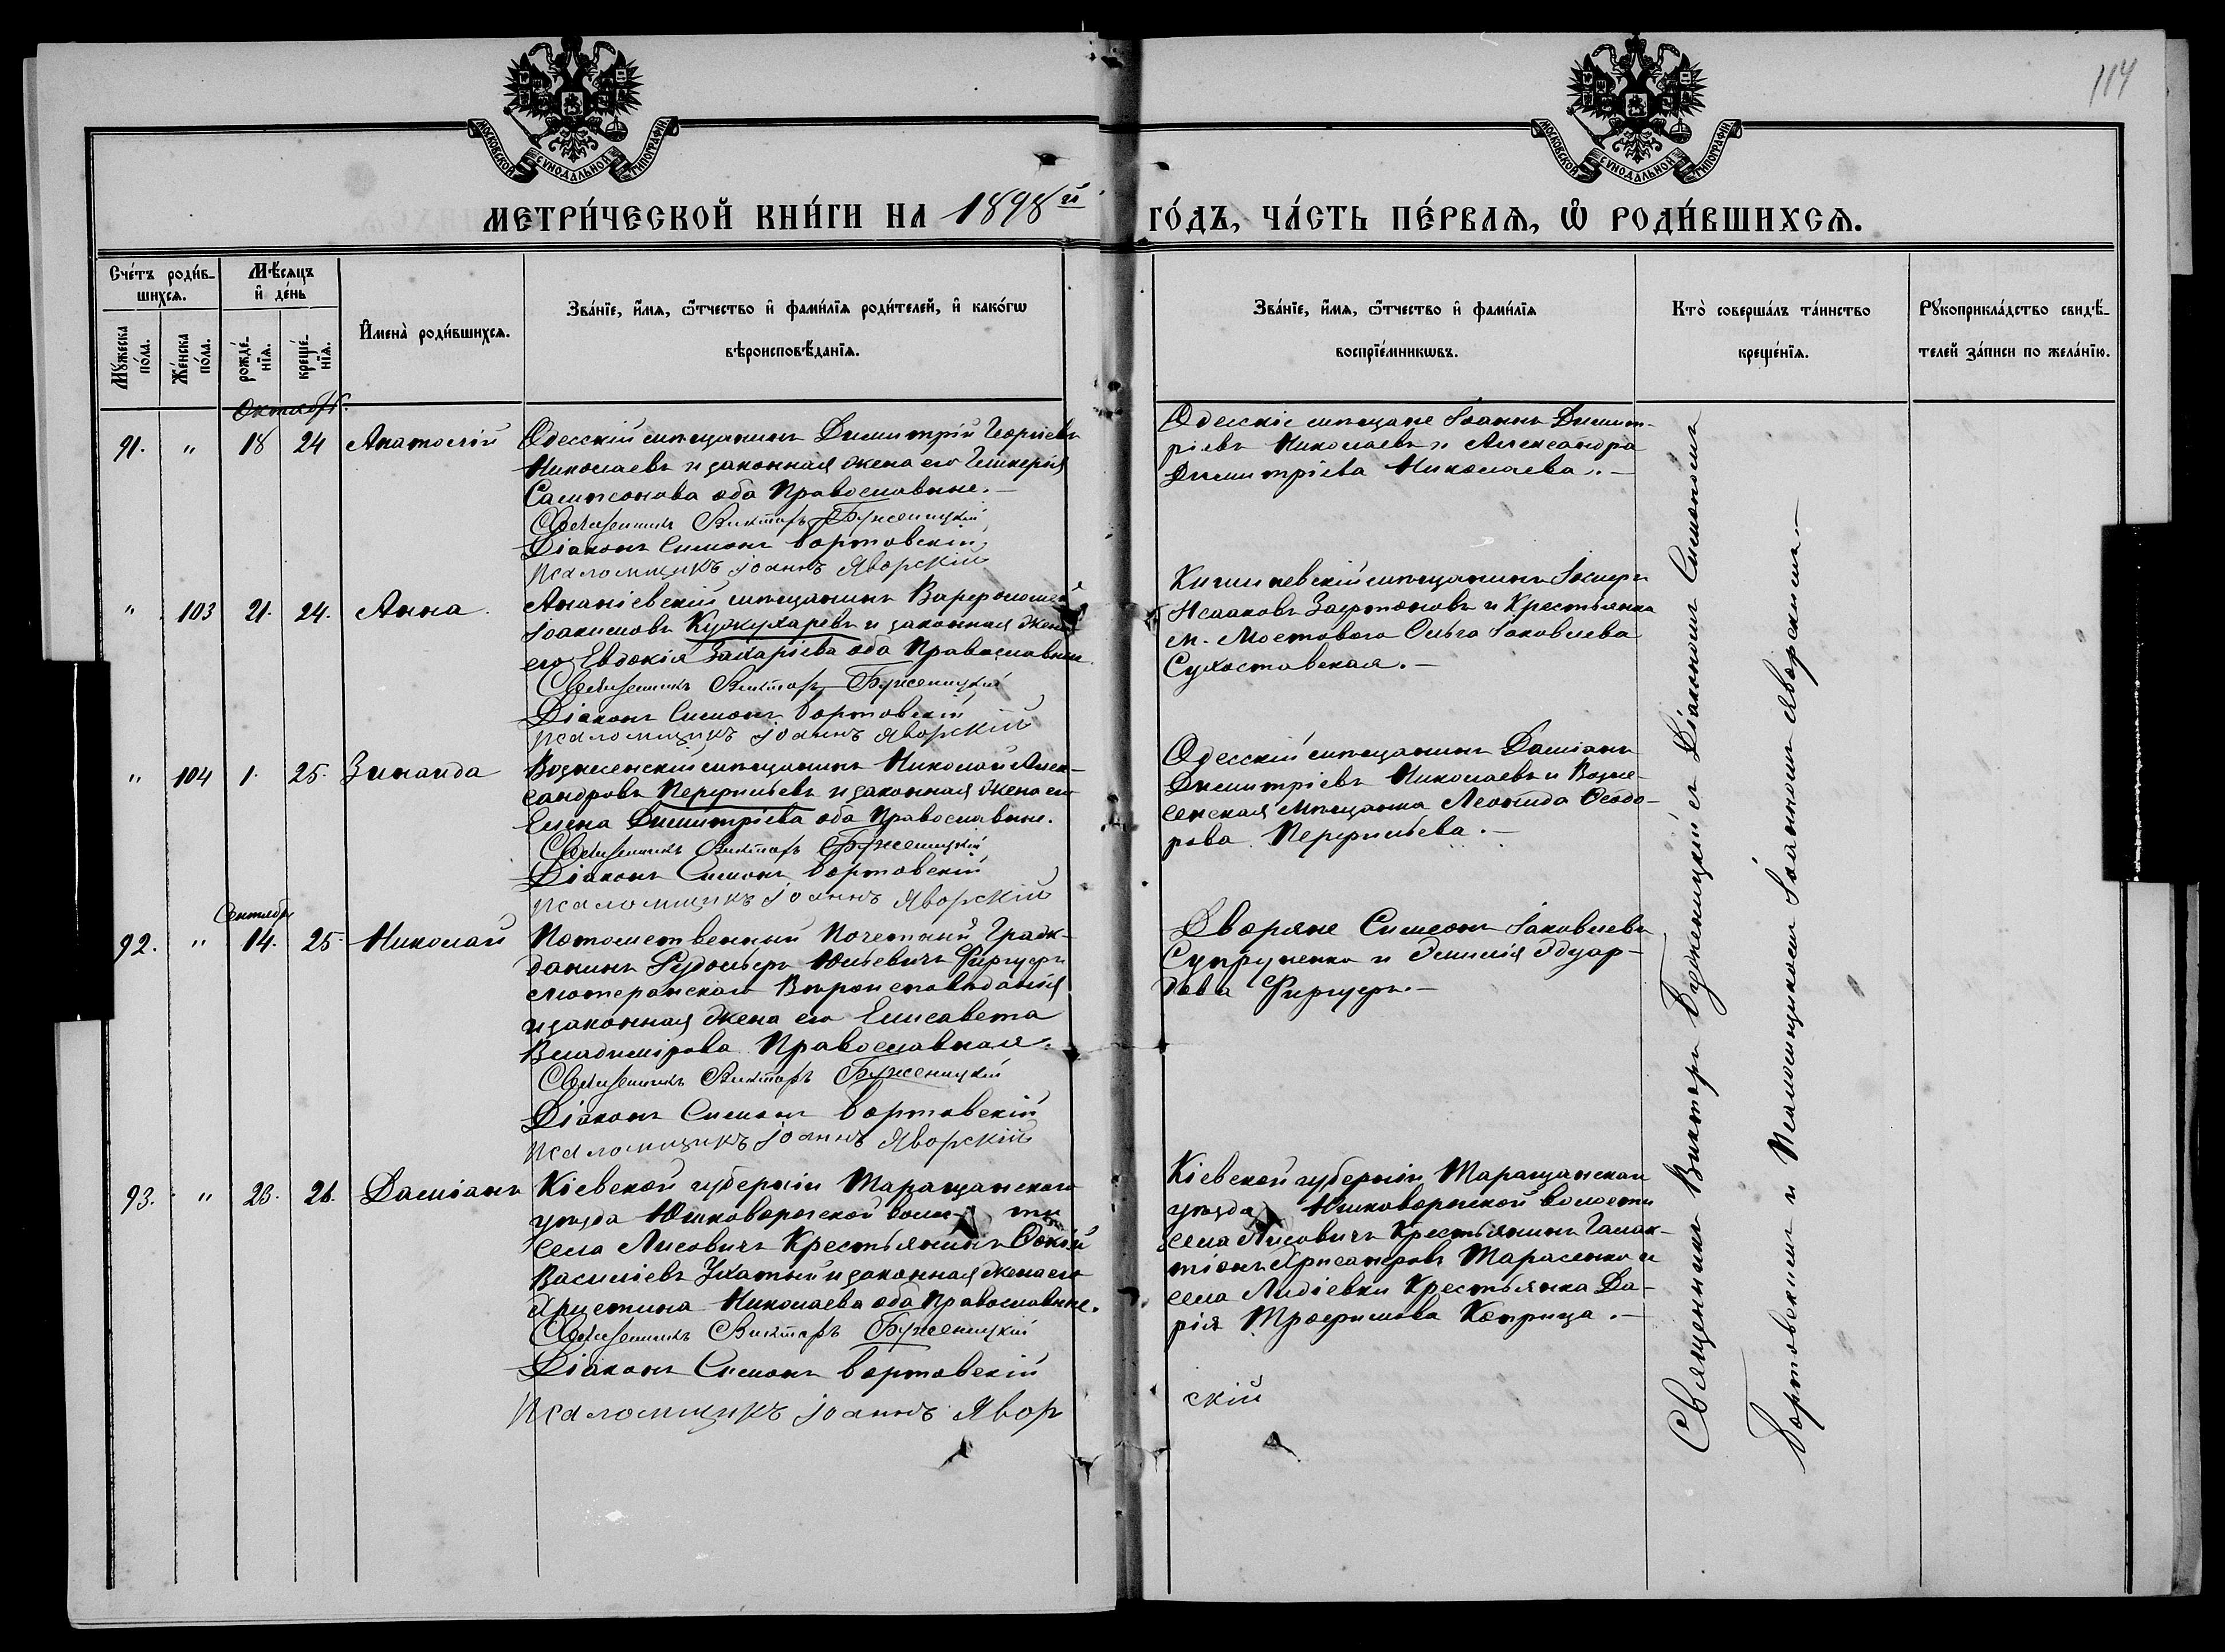 114
МОСКОВСКОЙ СѴНОДАЛЬНОЙ ТИПОГРАФІИ.
МОСКОВСКОЙ СѴНОДАЛЬНОЙ ТИПОГРАФІИ.
МЕТРИ́ЧЕСКОЙ КНИ́ГИ НА 1898й
ГО́ДЪ, ЧА́СТЬ ПЕ́РВАѦ, Ѡ҆ РОДИ́ВШИХСѦ.
Сче́тъ роди́в-
шихсѧ.
Мꙋ́жеска по́ла.
Же́нска по́ла.
Мѣ́сѧцъ
и҆ де́нь
рожде́-нїѧ.
креще́-нїѧ.
И҆мена̀ роди́вшихсѧ.
Зва́нїе, и҆́мѧ, ѻ҆́тчество и҆ фами́лїѧ роди́телей, и҆ како́гѡ
вѣроисповѣ́данїѧ.
Зва́нїе, и҆́мѧ, ѻ҆́тчество и҆ фами́лїѧ
воспрїе́мникѡвъ.
Кто̀ соверша́лъ та́инство
креще́нїѧ.
Рꙋкоприкла́дство свидѣ́-
телей за́писи по жела́нїю.
Октябрь.
91. " 18 24 Анатолій
Одесскій мѣщанинъ Димитрій Георгіевъ
Николаевъ и законная жена его Гликерія
Сампсонова оба Православные.—
Священникъ Викторъ Буженицкій
Діаконъ Симонъ Бортовскій
Псаломщикъ Іоаннъ Яворскій
Одесскіе мѣщане Іоаннъ Димит-
ріевъ Николаевъ и Александра
Димитріева Николаева.—
" 103 21. 24. Анна.
Ананіевскій мѣщанинъ Варфоломей
Іоакимовъ Кужухаревъ и законная жена
его Евдокія Захаріева оба Православные.
Священникъ Викторъ Буженицкій
Діаконъ Симонъ Бортовскій
Псаломщикъ Іоаннъ Яворскій
Кишиневскій мѣщанинъ Іосифъ
Исааковъ и Крестьянка
м. Мостового Ольга Іаковлева
Сухоставская.—
" 104 1. 25. Зинаида
Вознесенскій мѣщанинъ Николай Алек-
сандровъ Перфильевъ и законная жена его
Елена Димитріева оба Православные.
Священникъ Викторъ Буженицкій
Діаконъ Симонъ Бортовскій
Псаломщикъ Іоаннъ Яворскій
Одесскій мѣщанинъ Даміанъ
Димитріевъ Николаевъ и Возне-
сенская Мѣщанка Леонида Ѳеодо-
рова Перфильева.—
Сентябрь
92. " 14. 25. Николай
Потомственный Почетный Граж-
данинъ Рудольфъ Юльевичъ
лютеранскаго Вѣроисповѣданія
и законная жена его Елисавета
Владимірова Православная.
Священникъ Викторъ Буженицкій
Діаконъ Симонъ Бортовскій
Псаломщикъ Іоаннъ Яворскій
Дворяне Симеонъ Іаковлевъ
Супруненко и Эмилія Эдуар-
дова
93. " 23. 26. Даміанъ
Кіевской губерніи Таращанскаго
уѣзда Юшковорогской волости
села Лисовичъ Крестьянинъ Фокій
Василіевъ Ухатый и законная жена его
Христина Николаева оба Православные.
Священникъ Викторъ Буженицкій
Діаконъ Симонъ Бортовскій
Псаломщикъ Іоаннъ Явор
скій
Кіевской губерніи Таращанскаго
уѣзда Юшковорогской волости
села Лисовичъ Крестьянинъ Галак-
тіонъ Хрисанфовъ Тарасенко и
села Лидіевки Крестьянка Да-
рія Трофимова Коприца.—
Священникъ Викторъ Буженицкій съ Діакономъ Симономъ
Бортовскимъ и Псаломщикомъ Іоанномъ Яворскимъ.—